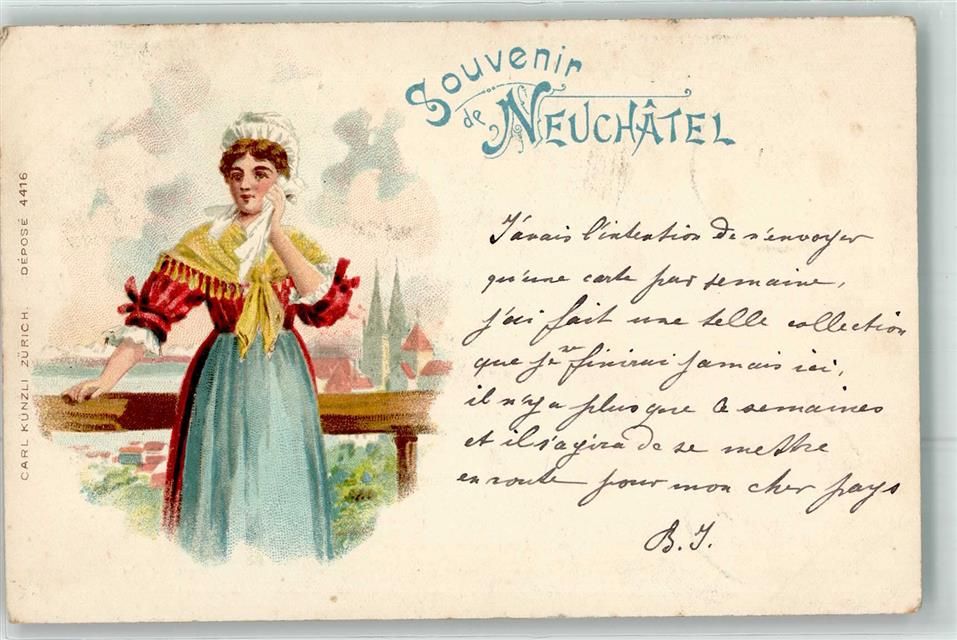 Souvenir
de NEUCHÂTEL
CARL KÜNZLI ZÜRICH. DÉPOSÉ 4416
J'avais l'intention de n'envoyer
qu'une carte par semaine,
j'ai fait une telle collection
que je ne finirai jamais ici,
il n'y a plus que 2 semaines
et il s'agira de se mettre
en route pour mon cher pays
B. J.